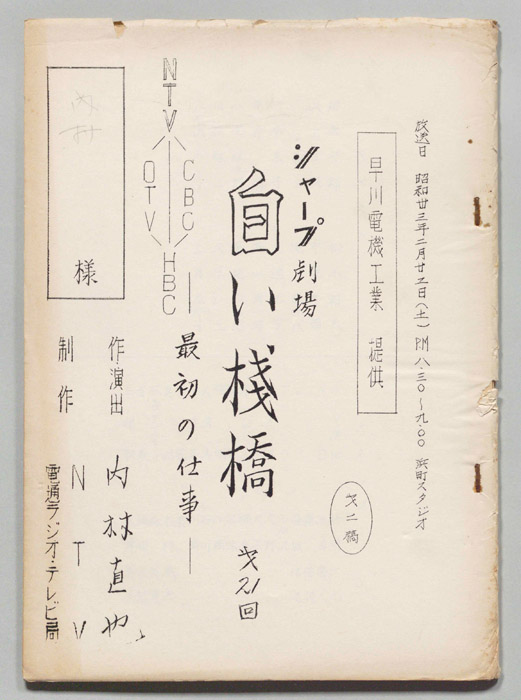 放送日 昭和廿三年二月廿二日(土) PM 八・三〇〜九・〇〇 浜町スタジオ
早川電機工業 提供
才二稿
シャープ劇場
白い桟橋
才21回
―最初の仕事―
NTV
CBC
OTV
HBC
作・演出 内村直也
制作 NTV
電通ラジオ・テレビ局
内村
様